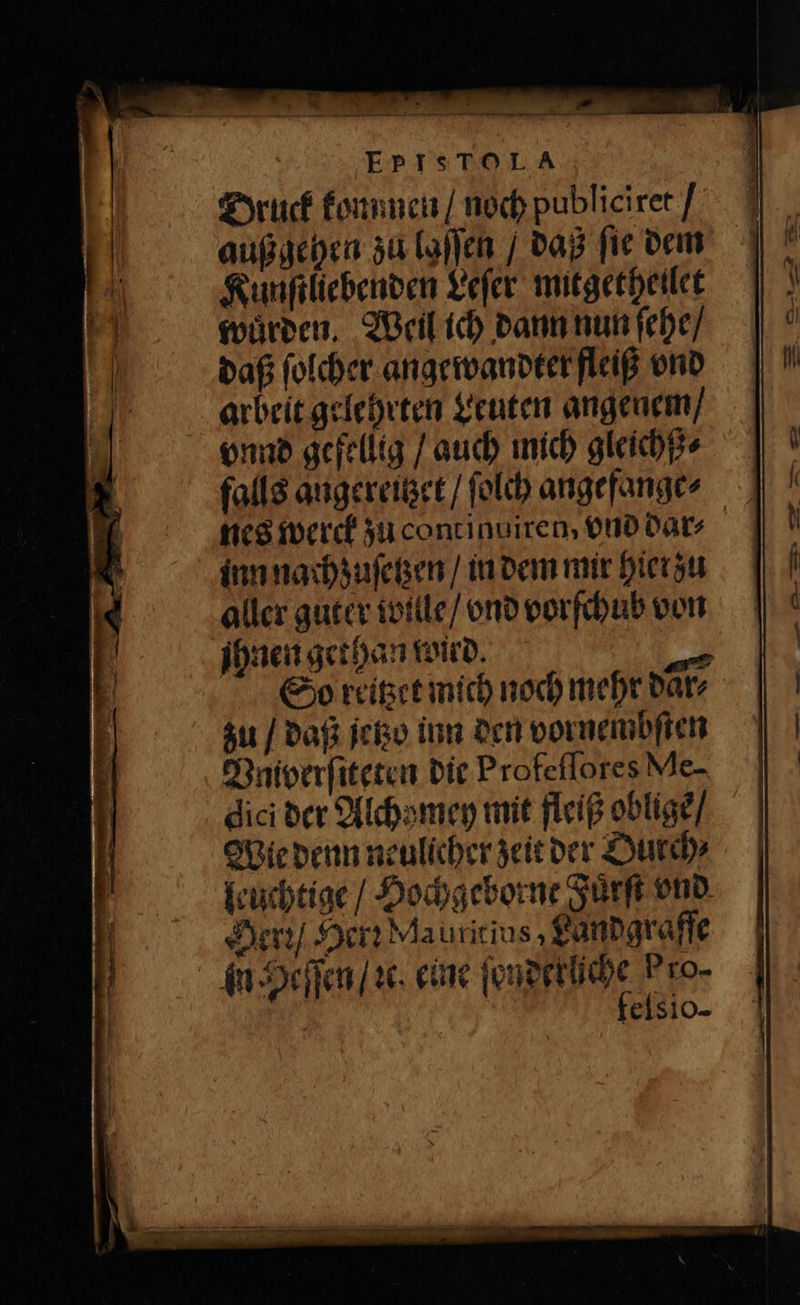 EPISTOLA
Druck kommen / noch publiciret /
außgehen zu laſſen / daß ſie dem
Kunſtliebenden Leſer mitgetheilet
wuͤrden. Weil ich dann nun ſehe/
daß ſolcher angewandter fleiß vnd
arbeit gelehrten Leuten angenem/
vnnd gefellig / auch mich gleichß⸗
falls angereitzet / ſolch angefange⸗
nes werck zu continuiren, vnd dar⸗
inn nachzuſetzen / in dem mir hierzu
aller guter wille / vnd vorſchub von
jhnen gethan wird.
So reitzet mich noch mehr dar⸗
zu / daß jetzo inn den vornembſten
Vniverſiteten die Profeſſores Me-
dici der Alchymey mit fleiß obligē/
Wie denn neulicher zeit der Durch⸗
leuchtige / Hochgeborne Fuͤrſt vnd
Herꝛ/ Herꝛ Mauritius, Landgraffe
in Heſſen / ꝛc. eine ſonderliche Pro-
feſsio-